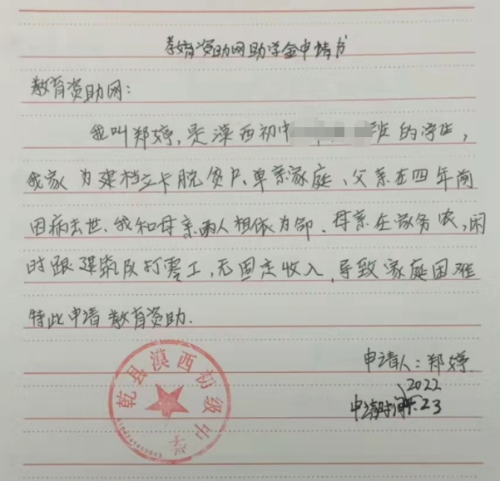 教育资助网助学金申请书
教育资助网:
我叫郑婷,是漠西初中班的学生,
我家为建档立卡脱贫户,单亲家庭、父亲在四年前
因病去世,我和母亲两人相依为命、母亲在家务农,闲
时跟建筑队打零工,无固定收入,导致家庭困难
特此申请教育资助.
申请人:郑婷
2022
申请时间:.23
乾县漠西初级中学